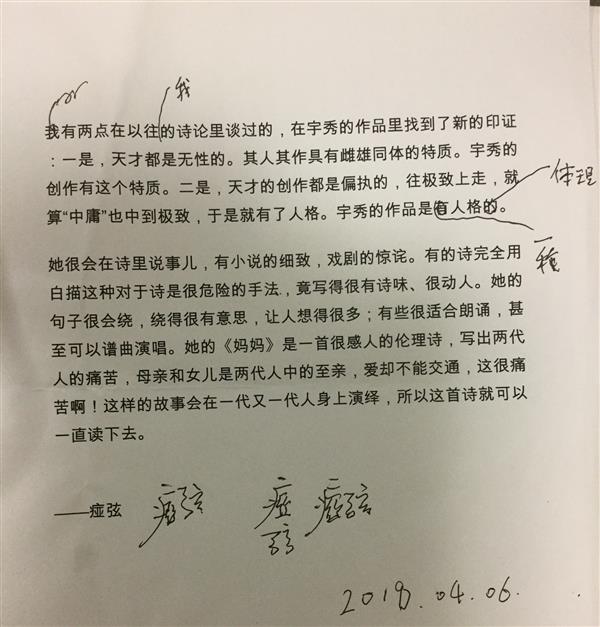 我
我有两点在以往的诗论里谈过的，在宇秀的作品里找到了新的印证
：一是，天才都是无性的。其人其作具有雌雄同体的特质。宇秀的
创作有这个特质。二是，天才的创作都是偏执的，往极致上走，就
算“中庸”也中到极致，于是就有了人格。宇秀的作品是有人格的。
体现
一种
她很会在诗里说事儿，有小说的细致，戏剧的惊诧。有的诗完全用
白描这种对于诗是很危险的手法，竟写得很有诗味、很动人。她的
句子很会绕，绕得很有意思，让人想得很多；有些很适合朗诵，甚
至可以谱曲演唱。她的《妈妈》是一首很感人的伦理诗，写出两代
人的痛苦，母亲和女儿是两代人中的至亲，爱却不能交通，这很痛
苦啊！这样的故事会在一代又一代人身上演绎，所以这首诗就可以
一直读下去。
——痖弦 痖弦 痖弦 痖弦
2018.04.06.